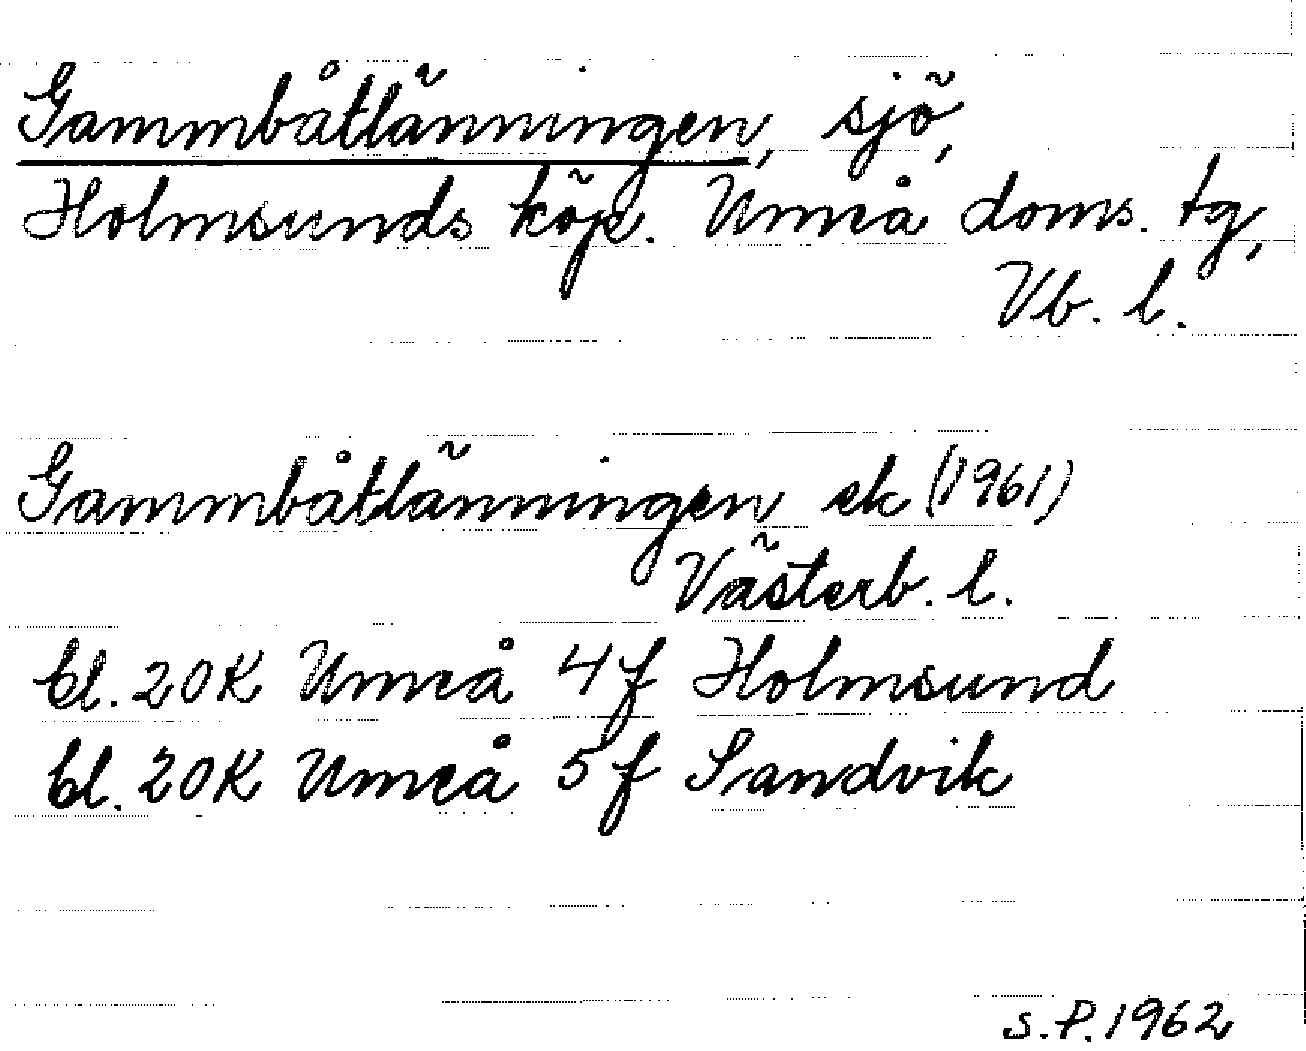 Gammbåtlänningen, sjö,
Holmsunds köp. Umeå doms. tg,
Vb. l.
Gammbåtlänningen ek (1961)
Västerb. l.
bl. 20K Umeå 4f Holmsund
bl. 20K Umeå 5f Sandvik
S.P. 1962